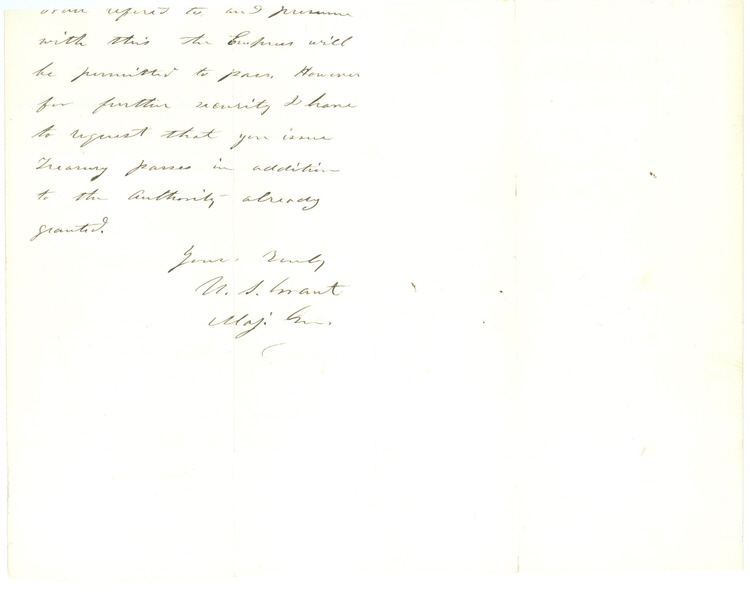 order refered to and presume
with this the Empress will
be permitted to pass. However
for further security I have
to request that you issue
Treasury passes in addition
to the Authority already
granted.
Yours Truly
U. S. Grant
Maj. Gen.